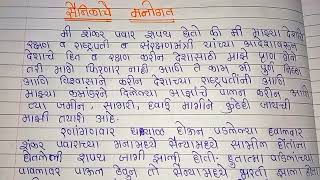 सैनिकाचे मनोगत
मी शंकर पवार शपथ घेतो की मी माझ्या देशाचे
रक्षण व राष्ट्रपती व संरक्षणमंत्री यांच्या आदेशावरून
देशाचे हित व रक्षण करीन देशासाठी माझे प्राण गेले
तरी मागे फिरणार नाही आणि ते काम मी पूर्ण निष्ठा
आणि विश्वासाने करीन देशाच्या राष्ट्रपतींनी आणि
माझ्या कमांडरने दिलेल्या आज्ञांचे पालन करीन आणि
त्या जमीन, सागरी, हवाई मार्गाने कुठेही जायची
माझी तयारी आहे.
रणांगणावर होऊन पडलेल्या हवालदार
शंकर पवारच्या मनामध्ये सैन्यामध्ये सामील होतांना
घेतलेली शपथ जागी झाली होती. हुतात्मा वडिलांच्या
पावलावर पाऊल ठेवून तो सैन्यामध्ये भरती झाला होता